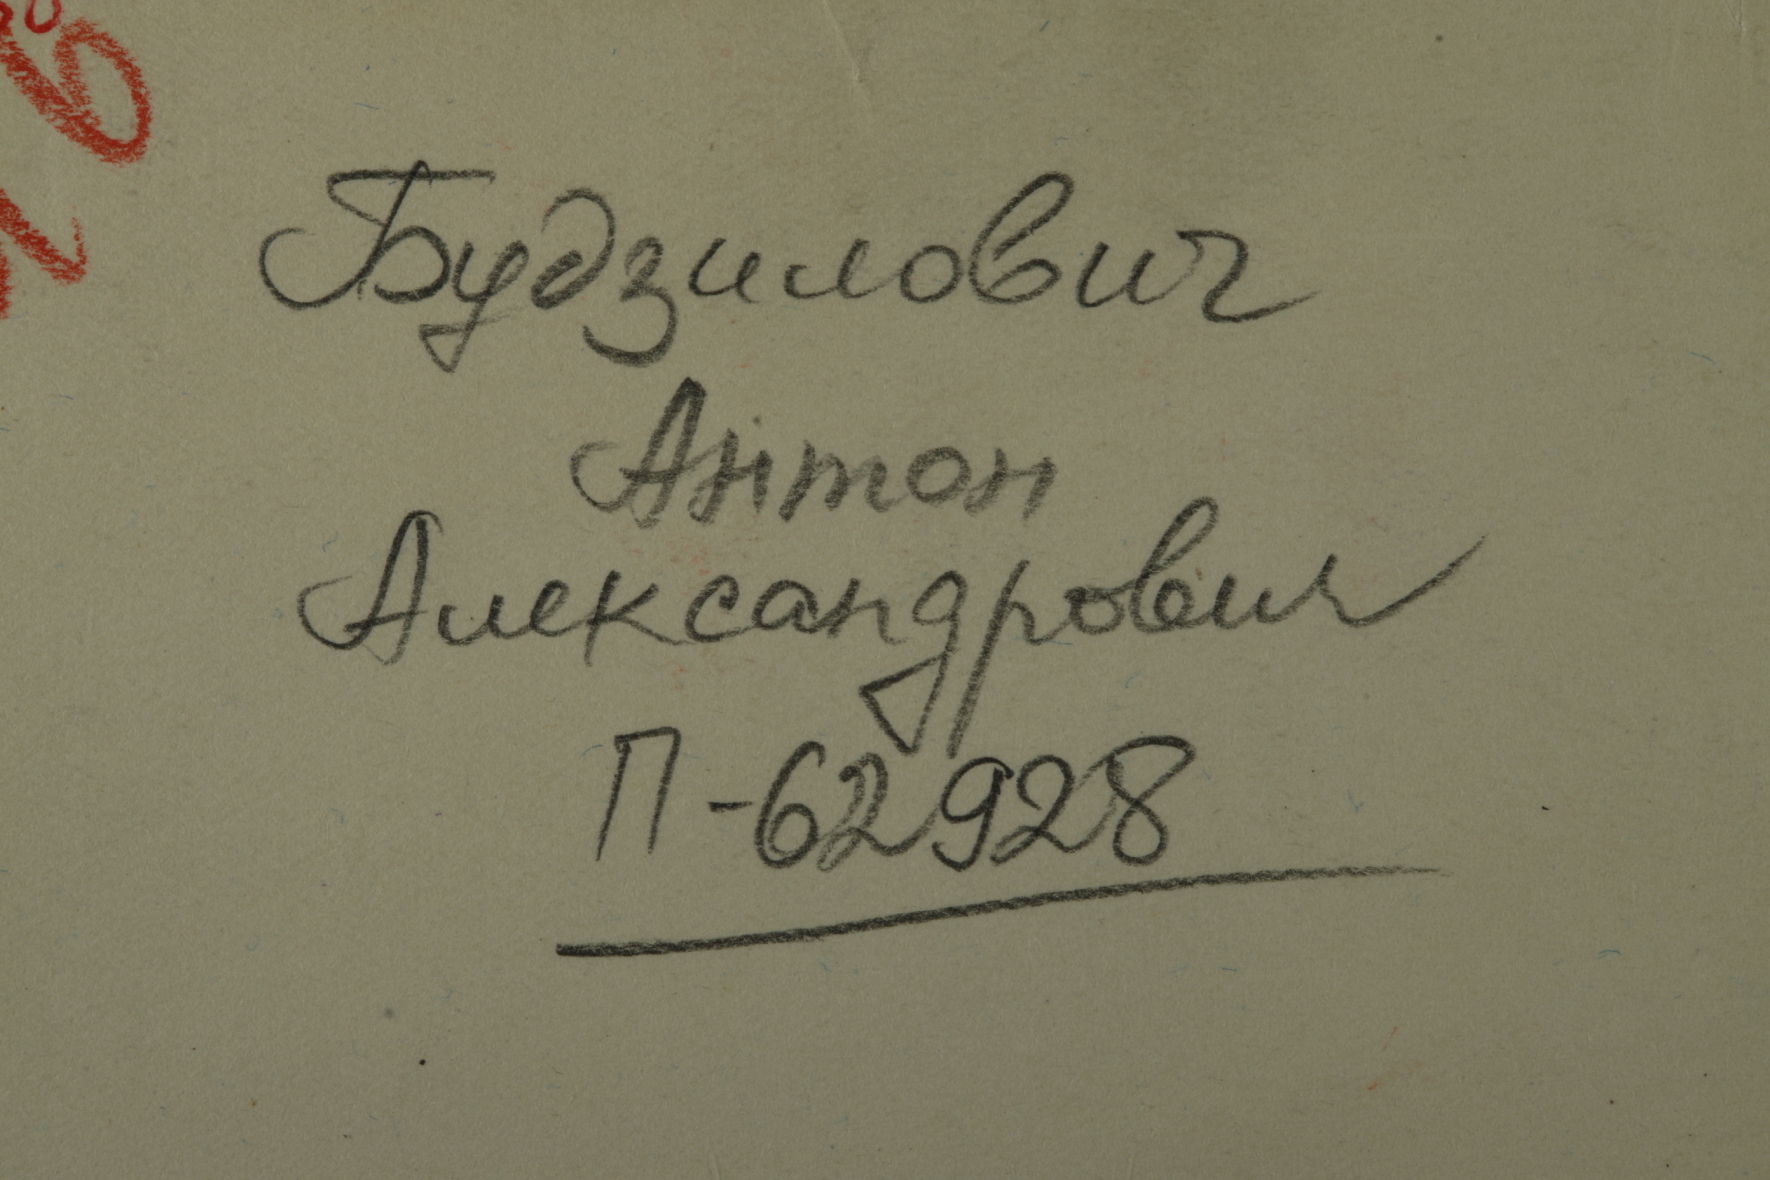 Будзилович
Антон
Александрович
П-62928